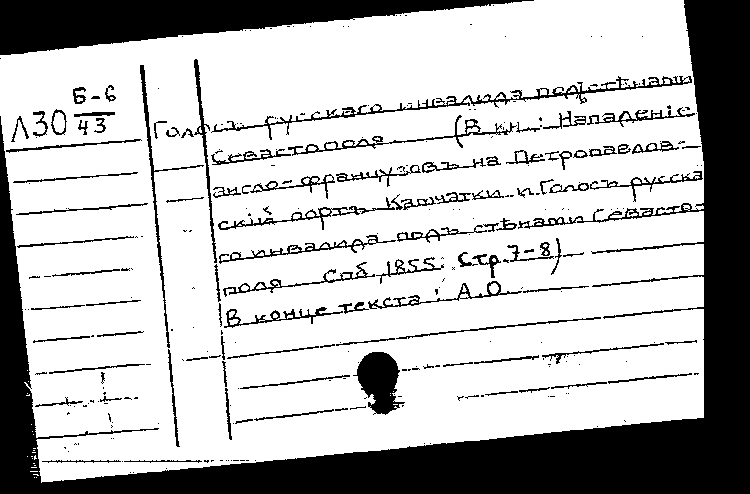 Л30 Б-6
43
Голосъ русскаго инвалида подъ стѣнами
Севастополя. (В кн.: Нападеніе
англо-французовъ на Петропавлов-
скій портъ Камчатки и Голосъ русска
го инвалида подъ стѣнами Севасто-
поля Спб, 1855. Стр. 7-8)
В конце текста: А.О.